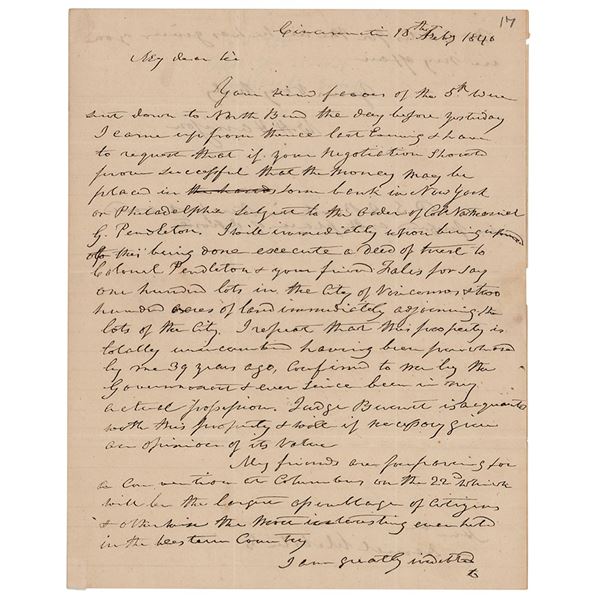 17
Cincinnati 18th Feby 1840
My dear Sir
Your kind favor of the 5th Were
sent down to North Bend the day before yesterday
I came up from thence last Evening & have
to request that if your Negotiation should
prove successful that the money may be
placed in the hands some bank in New York
or Philadelphia subject to the order of Col. Nathaniel
G. Pendleton. I will immediately upon being informed
of this being done execute a Deed of trust to
Colonel Pendleton & your friend Fales for say
one hundred lots in the City of Vincennes & two
hundred acres of land immediately adjoining the
lots of the City. I repeat that this property is
totally unincumbered having been purchased
by me 39 years ago, Confirmed to me by the
Government & ever since been in my
actual possession. Judge Burnet is acquainted
with this property & will if necessary give
an opinion of its value
My friends are preparing for
a Convention at Columbus on the 22d which
will be the largest assemblage of Citizens
& otherwise the most interesting ever held
in the Western Country
I am greatly indebted
to